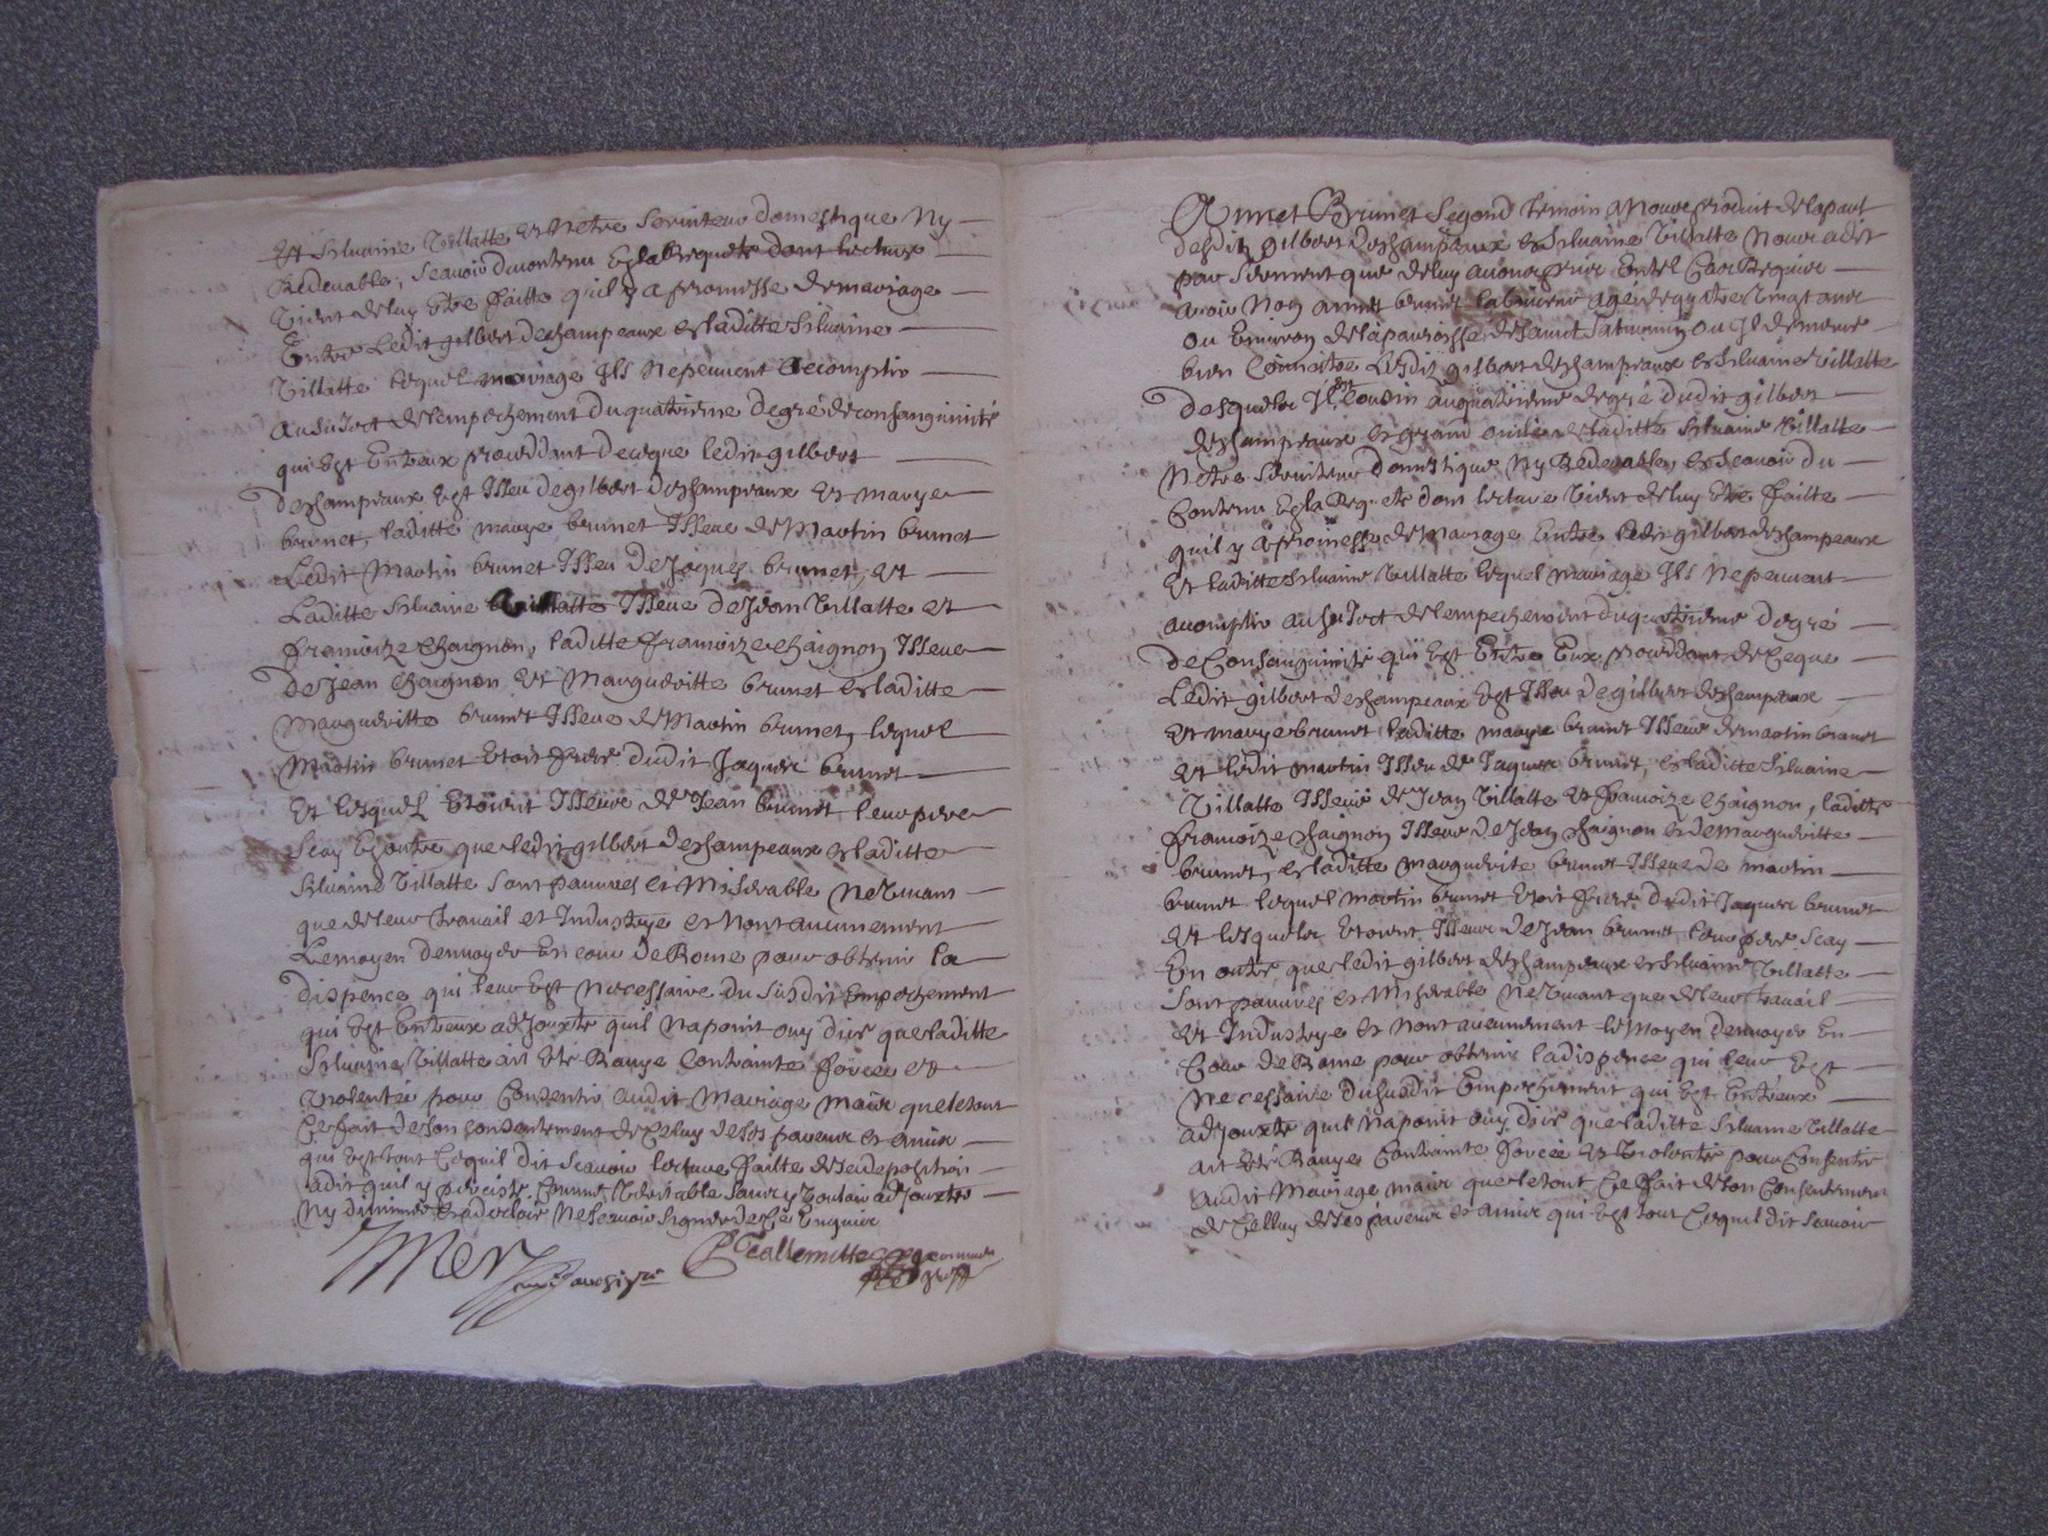 Et Siluaine Villatte et Netre Seruiteur domestique Ny
Redeuable, Scauoir du contenu En la Requete dont lecture
Vient de luy Etre faitte quil y a promesse de mariage
Entre Ledit gilbert deschampeaux et laditte Siluaine
Villatte lequel mariage Ils ne peuuent accomplir
au sujort de lempechement du quatrieme degré de consanguinité
qui Est Entreux proceddant de ceque ledit gilbert
deschampeaux Est Isseu de gilbert deschampeaux et marye
brunet, laditte marye brunet Isseue de Martin brunet
Ledit Martin brunet Isseu de Jaques brunet, et
Laditte Siluaine Villatte Isseue de Jean Villatte et
francoize Chaignon, laditte francoize chaignon Isseue
de Jean Chaignon Et Margueritte brunet et laditte
Margueritte brunet Isseue de Martin brunet, lequel
Martin brunet Etoit frere dudit Jaques brunet
Et lesquels Etoient Isseus de Jean brunet leur pere
Scay En outre que ledit gilbert deschampeaux et laditte
Siluaine Villatte sont pauures et Miserable ne Viuant
que de leur trauail et Industrye et Nont aucunement
Le moyen denuoyer En cour de Rome pour obtenir la
dispence qui leur Est Necessaire du susdit Empechement
qui Est Entreux adJouxte quil na point ouy dire que laditte
Siluaine Villatte ait Eté Rauye Contrainte forcée et
Violentée pour Consentir audit Mariage mais que le tout
Ce fait de son consentement de Celuy de ses parens et amis
qui Est tout Cequil dit Scauoir lecture faitte de sa deposition
a dit quil y persiste Comme Veritable sans y Vouloir adJouxter
Ny diminuer Et a declaré Ne Scauoir signer de Ce Enquis
Tallemitte commis
greff
Annet Brunet Segond temoin a Nous produit de la part
desdits gilbert deschampeaux et Siluaine Villatte Nous a dit
par Serment que de luy auons prins En tel Cas Requis
auoir Nom annet brunet laboureur agé de quatre Vingt ans
ou Enuiron de la parroisse de Saint Saturnin ou Il demeure
bien Connoitre Lesdits gilbert deschampeaux et Siluaine Villatte
desquels Il est Cousin au quatrieme degré dudit gilbert
deschampeaux et grand oncle de laditte Siluaine Villatte
Netre Seruiteur domestique Ny Redeuable, et Scauoir du
Contenu En la Requete dont lecture Vient de luy Etre faitte
quil y a promesse de Mariage Entre ledit gilbert deschampeaux
Et laditte Siluaine Villatte lequel mariage Ils Ne peuuent
accomplir au sujort de lempechement du quatrieme degré
de Consanguinité qui Est Entre Eux proceddant de Ceque
Ledit gilbert deschampeaux Est Isseu de gilbert deschampeaux
Et marye brunet laditte marye brunet Isseue de martin brunet
Et ledit martin Isseu de Jaques brunet, et laditte Siluaine
Villatte Isseue de Jean Villatte Et francoize Chaignon, laditte
francoize chaignon Isseue de Jean chaignon et de Margueritte
brunet, et laditte margueritte brunet Isseue de martin
brunet lequel martin brunet Etoit frere dudit Jaques brunet
Et lesquels Etoient Isseus de Jean brunet, leur pere Scay
En outre que ledit gilbert deschampeaux et Siluaine Villatte
Sont pauures et Miserable Ne Viuant que de leur trauail
Et Industrye et Nont aucunement le Moyen denuoyer En
Cour de Rome pour obtenir la dispence qui leur Est
Necessaire du susdit Empechement qui Est Entreux
adJouxte quil Na point ouy dire que laditte Siluaine Villatte
ait Eté Rauye Contrainte forcée et Violentée pour Consentir
audit Mariage mais que le tout Ce fait de son Consentement
de Celluy de ses parens et amis qui Est tout Cequil dit Scauoir